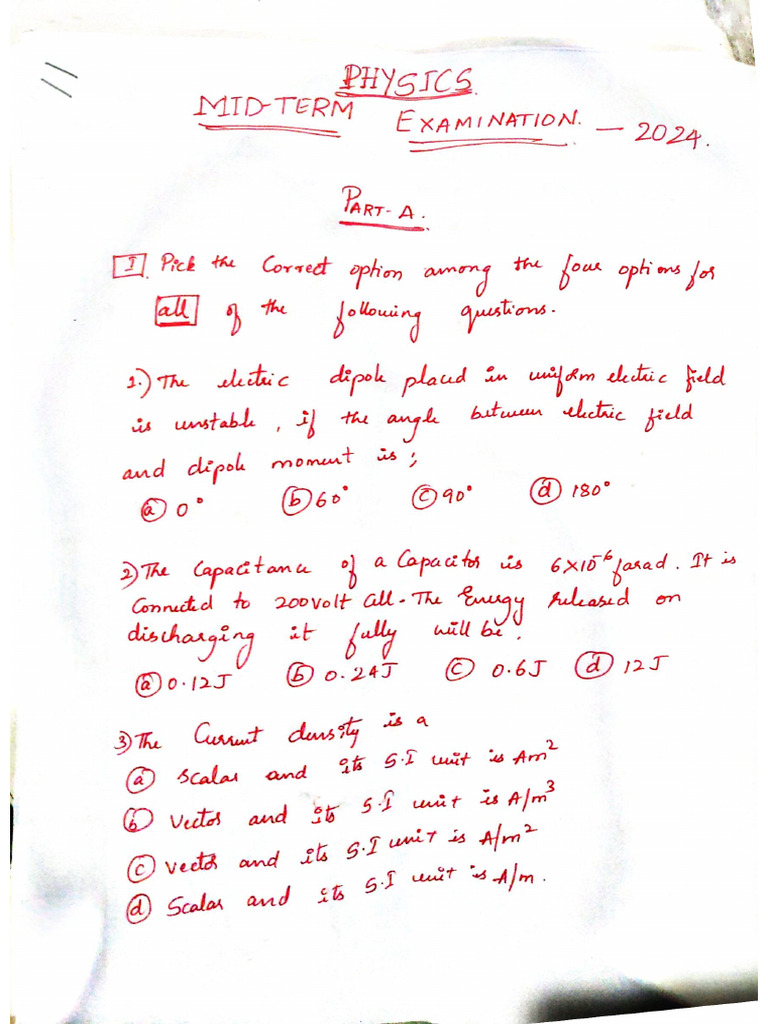 PHYSICS
MID-TERM EXAMINATION. - 2024.
PART-A.
I. Pick the Correct option among the four options for
all of the following questions.
1.) The electric dipole placed in uniform electric field
is unstable, if the angle between electric field
and dipole moment is;
(a) 0° (b) 60° (c) 90° (d) 180°
2) The Capacitance of a Capacitor is 6×10⁻⁶ farad. It is
Connected to 200volt Cell. The Energy released on
discharging it fully will be.
(a) 0.12J (b) 0.24J (c) 0.6J (d) 12J
3) The Current density is a
(a) Scalar and its S.I unit is Am²
(b) Vector and its S.I unit is A/m³
(c) Vector and its S.I unit is A/m²
(d) Scalar and its S.I unit is A/m.